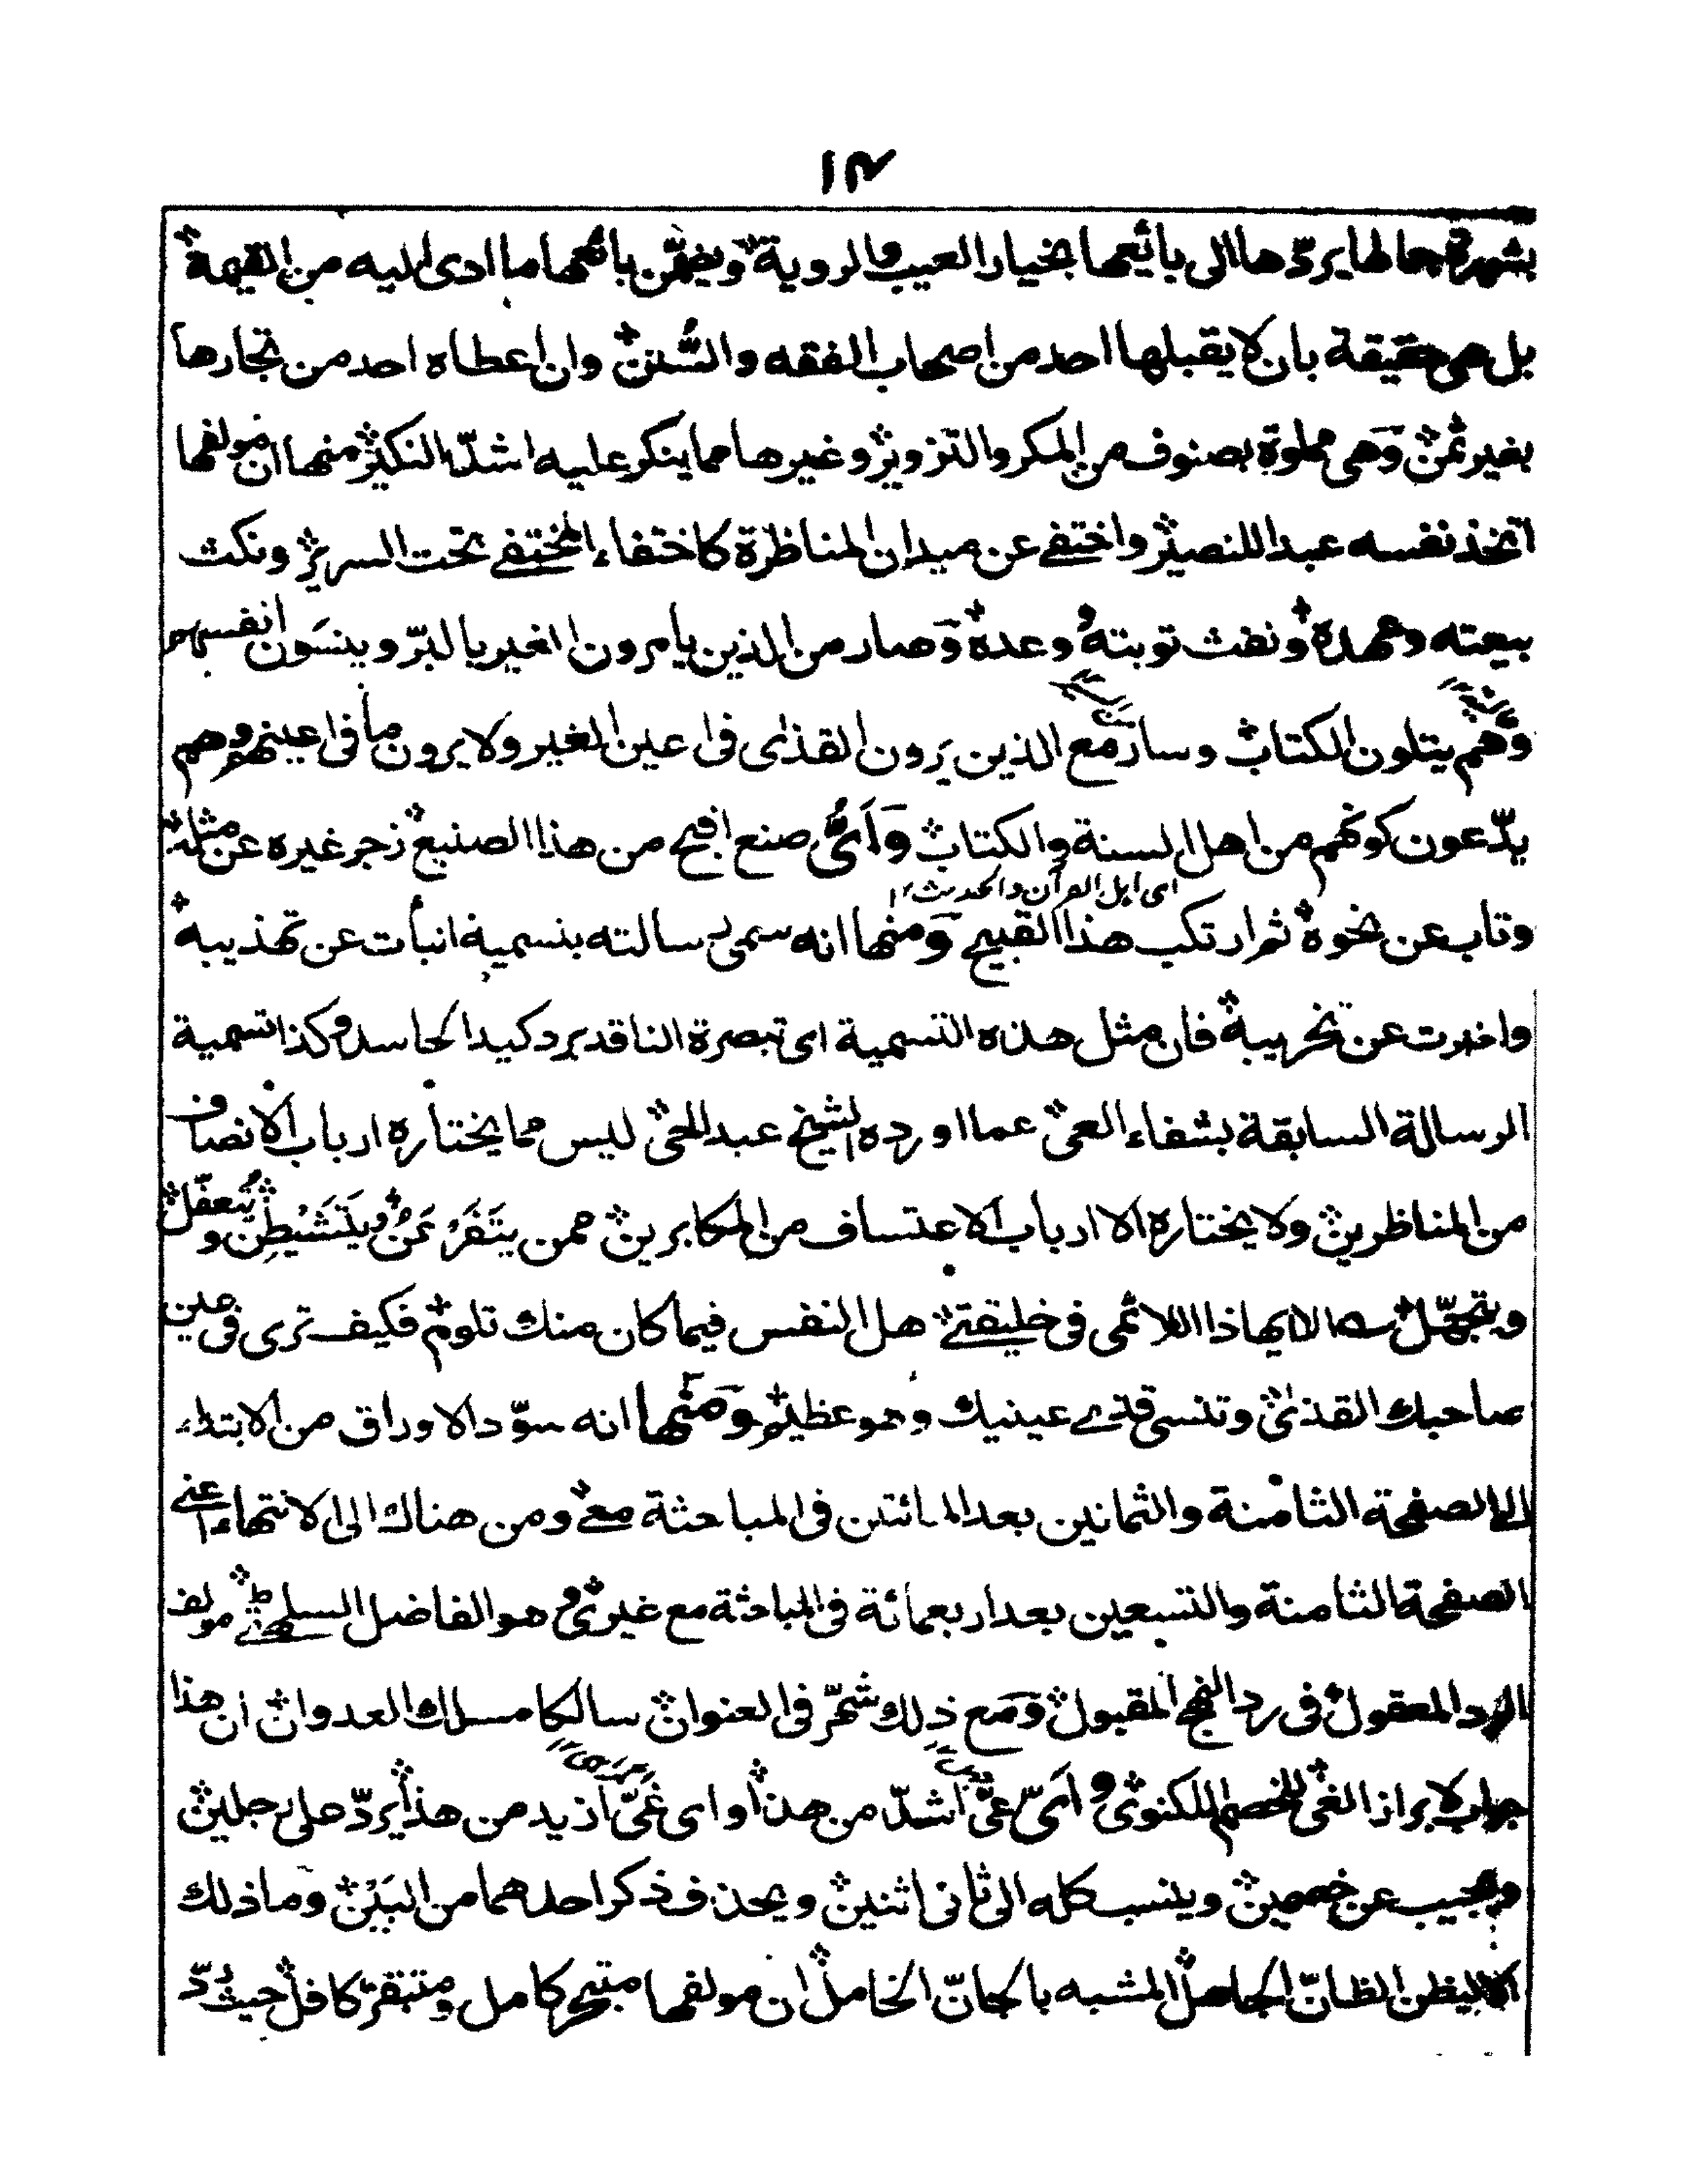 ١٣
بشهرة جمالها يردّها الى بائعها بخيار العيب والروية ويضمّن بائعها ما ادى اليه من القيمة
بل هى حقيقة بان لا يقبلها احد من اصحاب الفقه والسُّنن وان اعطاه احد من تجارها
بغير ثمن وهى مملوة بصنوف من المكر والتزوير وغيرها مما ينكر عليه اشدّ النكير منها ان مولفها
اتخذ نفسه عبدا للنصير واختفى عن ميدان المناظرة كاختفاء المختفے تحت السرير ونكث
بيعته وعهده ونفث توبته وعده وصار من الذين يامرون الغير بالبرّ وينسَون انفسهم
وهم يتلون الكتاب وسار مع الذين يرون القذى فى اعين الغير ولا يرون ما فى اعينهم وهم
يدّعون كونهم من اهل السنة والكتاب وَاَىُّ صنع اقبح من هذا الصنيع زجر غيره عن مثله
اى اهل القرآن والحديث ١٢
وتاب عن نحوه ثم ارتكب هذا القبيح ومنها انه سمى رسالته بتسمية انبأت عن تهذيبه
واخبرت عن تخريبه فان مثل هذه التسمية اى تبصرة الناقد برد كيد الحاسد وكذا تسمية
الرسالة السابقة بشفاء العى عما اورده الشيخ عبد الحى ليس مما يختاره ارباب الانصاف
من المناظرين ولا يختاره الا ارباب الاعتساف من المكابرين ممن يتَفَرْعَنُ ويَتَشَيْطن و
ويتجهّل الا يهاذا اللائمى فى خليقتے هل النفس فيما كان منك تلوم فكيف ترى فى عين
صاحبك القذى وتنسى قذے عينيك وهو عظيم ومنها انه سوّد الاوراق من الابتداء
الى الصفحة الثامنة والثمانين بعد المائتين فى المباحثة معے ومن هناك الى الانتهاء اعنے
الصفحة الثامنة والتسعين بعد اربعمائة فى المباحثة مع غيرى وهو الفاضل السلهٹے مولف
الرد المعقول فى رد النهج المقبول ومع ذلك شهّر فى العنوان سالكا مسلك العدوان ان هذا
جواب لابراز الغى للخصم اللكنوى واَىّ عىّ اشدّ من هذا واى غىّ ازيد من هذا يردّ على رجلين
ويجيب عن خصمين وينسب كله الى ثانى اثنين ويحذف ذكر احدهما من البَيْن وما ذلك
الا ليظن الظانّ الجاهل المشبه بالجانّ الخامل ان مولفها متبحر كامل ومتبقر كافل حيث ردّ